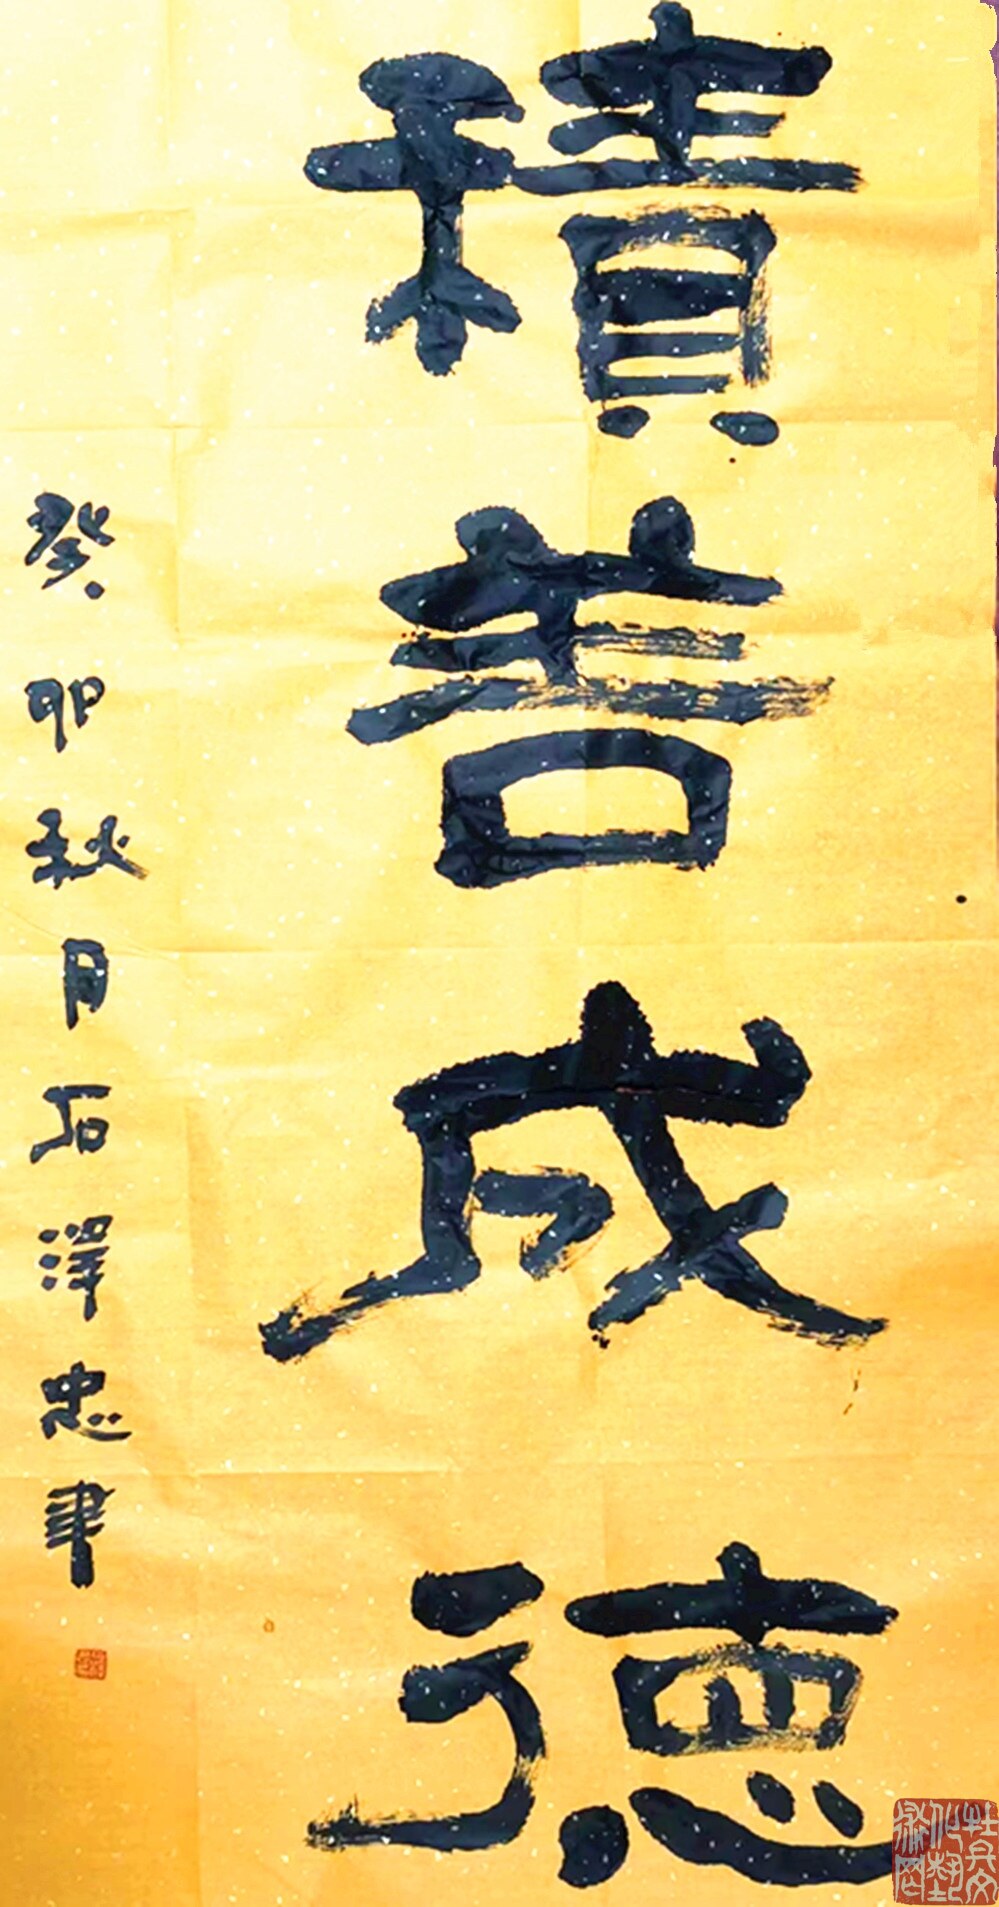 積善成德
癸卯秋月石澤忠書